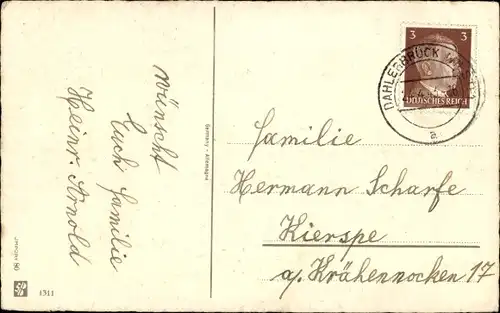 wünscht
Euch Familie
Heinr. Arnold
Germany - Allemagne
1311
3 3
DEUTSCHES REICH
DAHLERBRÜCK
a
Familie
Hermann Scharfe
Kierspe
a. Krähennocken 17